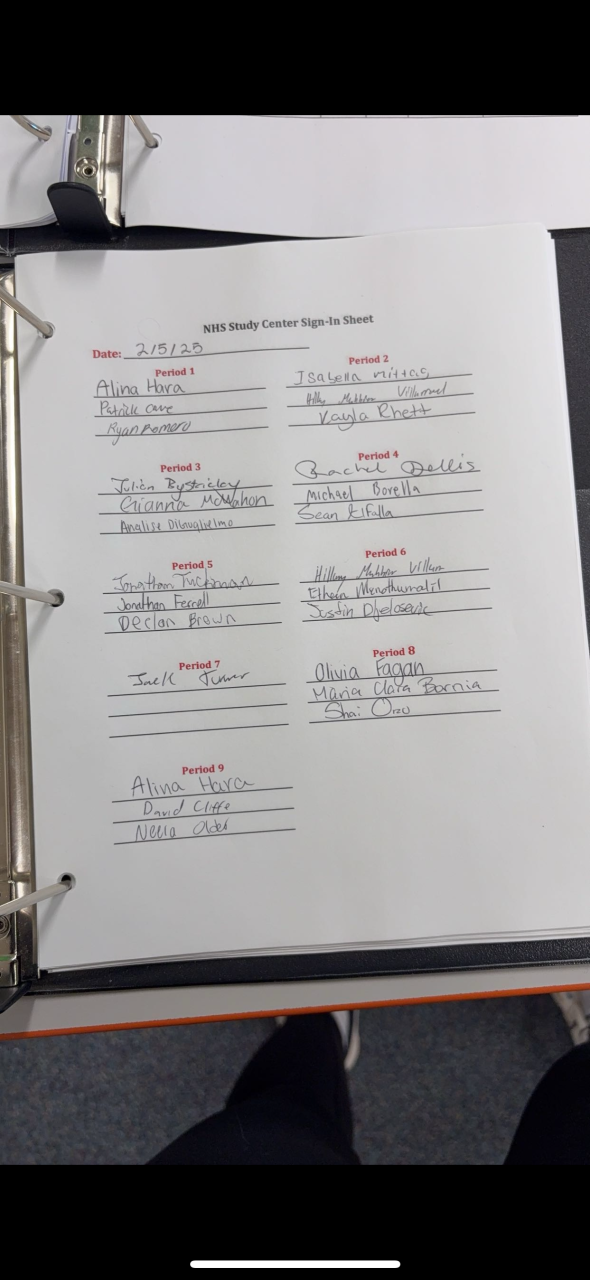 NHS Study Center Sign-In Sheet
Date: 2/5/25
Period 1
Alina Hara
Patrick
Ryan Romero
Period 2
Isabella
Villarreal
Kayla Rhett
Period 3
Julien Bystricky
Gianna McMahon
Analise
Period 4
Rachel Dellis
Michael Borella
Sean
Period 5
Jonathan Tuckman
Jonathan Ferrell
Declan Brown
Period 6
Ethan
Justin
Period 7
Jack Turner
Period 8
Olivia Fagan
Maria Clara Bornia
Shai
Period 9
Alina Hara
David Cliffe